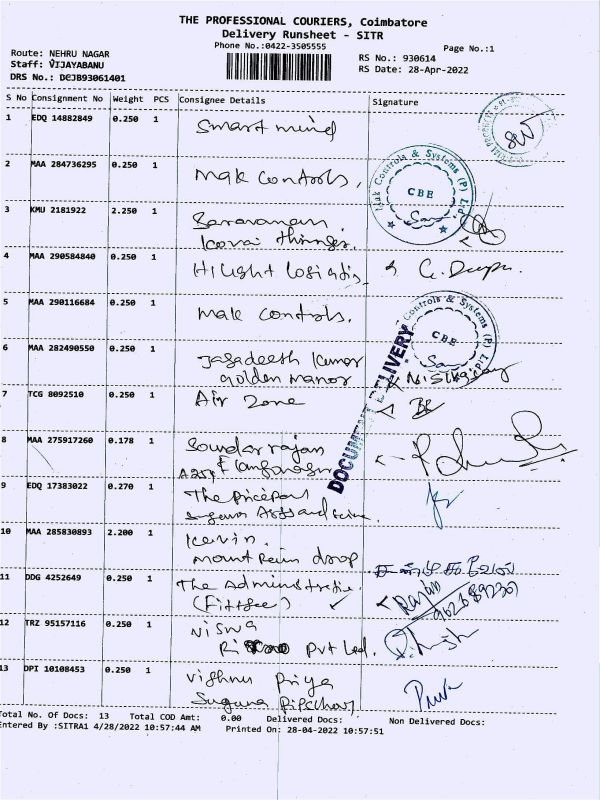 THE PROFESSIONAL COURIERS, Coimbatore
Delivery Runsheet - SITR
Phone No.:0422-3505555
Page No.:1
Route: NEHRU NAGAR
Staff: VIJAYABANU
DRS No.: DCJB93061401
RS No.: 930614
RS Date: 28-Apr-2022
S No Consignment No Weight PCS Consignee Details Signature
1 EDQ 14882849 0.250 1 Smart mind
2 MAA 284736295 0.250 1 Mak Controls,
Mak Controls & Systems (P) Ltd
CBE
3 KMU 2181922 2.250 1 Saravanan
Kovai
4 MAA 290584840 0.250 1 Hilight
5 MAA 290116684 0.250 1 Mak Controls.
Controls & Systems (P) Ltd
CBE
DOCUMENT DELIVERY
6 MAA 282490550 0.250 1 Jagadeesh Kumar
Golden Manor
7 TCG 8092510 0.250 1 Air Zone
8 MAA 275917260 0.178 1 Soundarrajan
9 EDQ 17383022 0.270 1 The
10 MAA 285830893 2.200 1 Kevin.
drop
சண்முகவேல்
11 DDG 4252649 0.250 1 The Administrative
Rajan
12 TRZ 95157116 0.250 1 Viswa
Pvt Ltd.
13 DPI 10108453 0.250 1 Vishnu Priya
Suguna
Total No. Of Docs: 13 Total COD Amt: 0.00 Delivered Docs: Non Delivered Docs:
Entered By :SITRA1 4/28/2022 10:57:44 AM Printed On: 28-04-2022 10:57:51